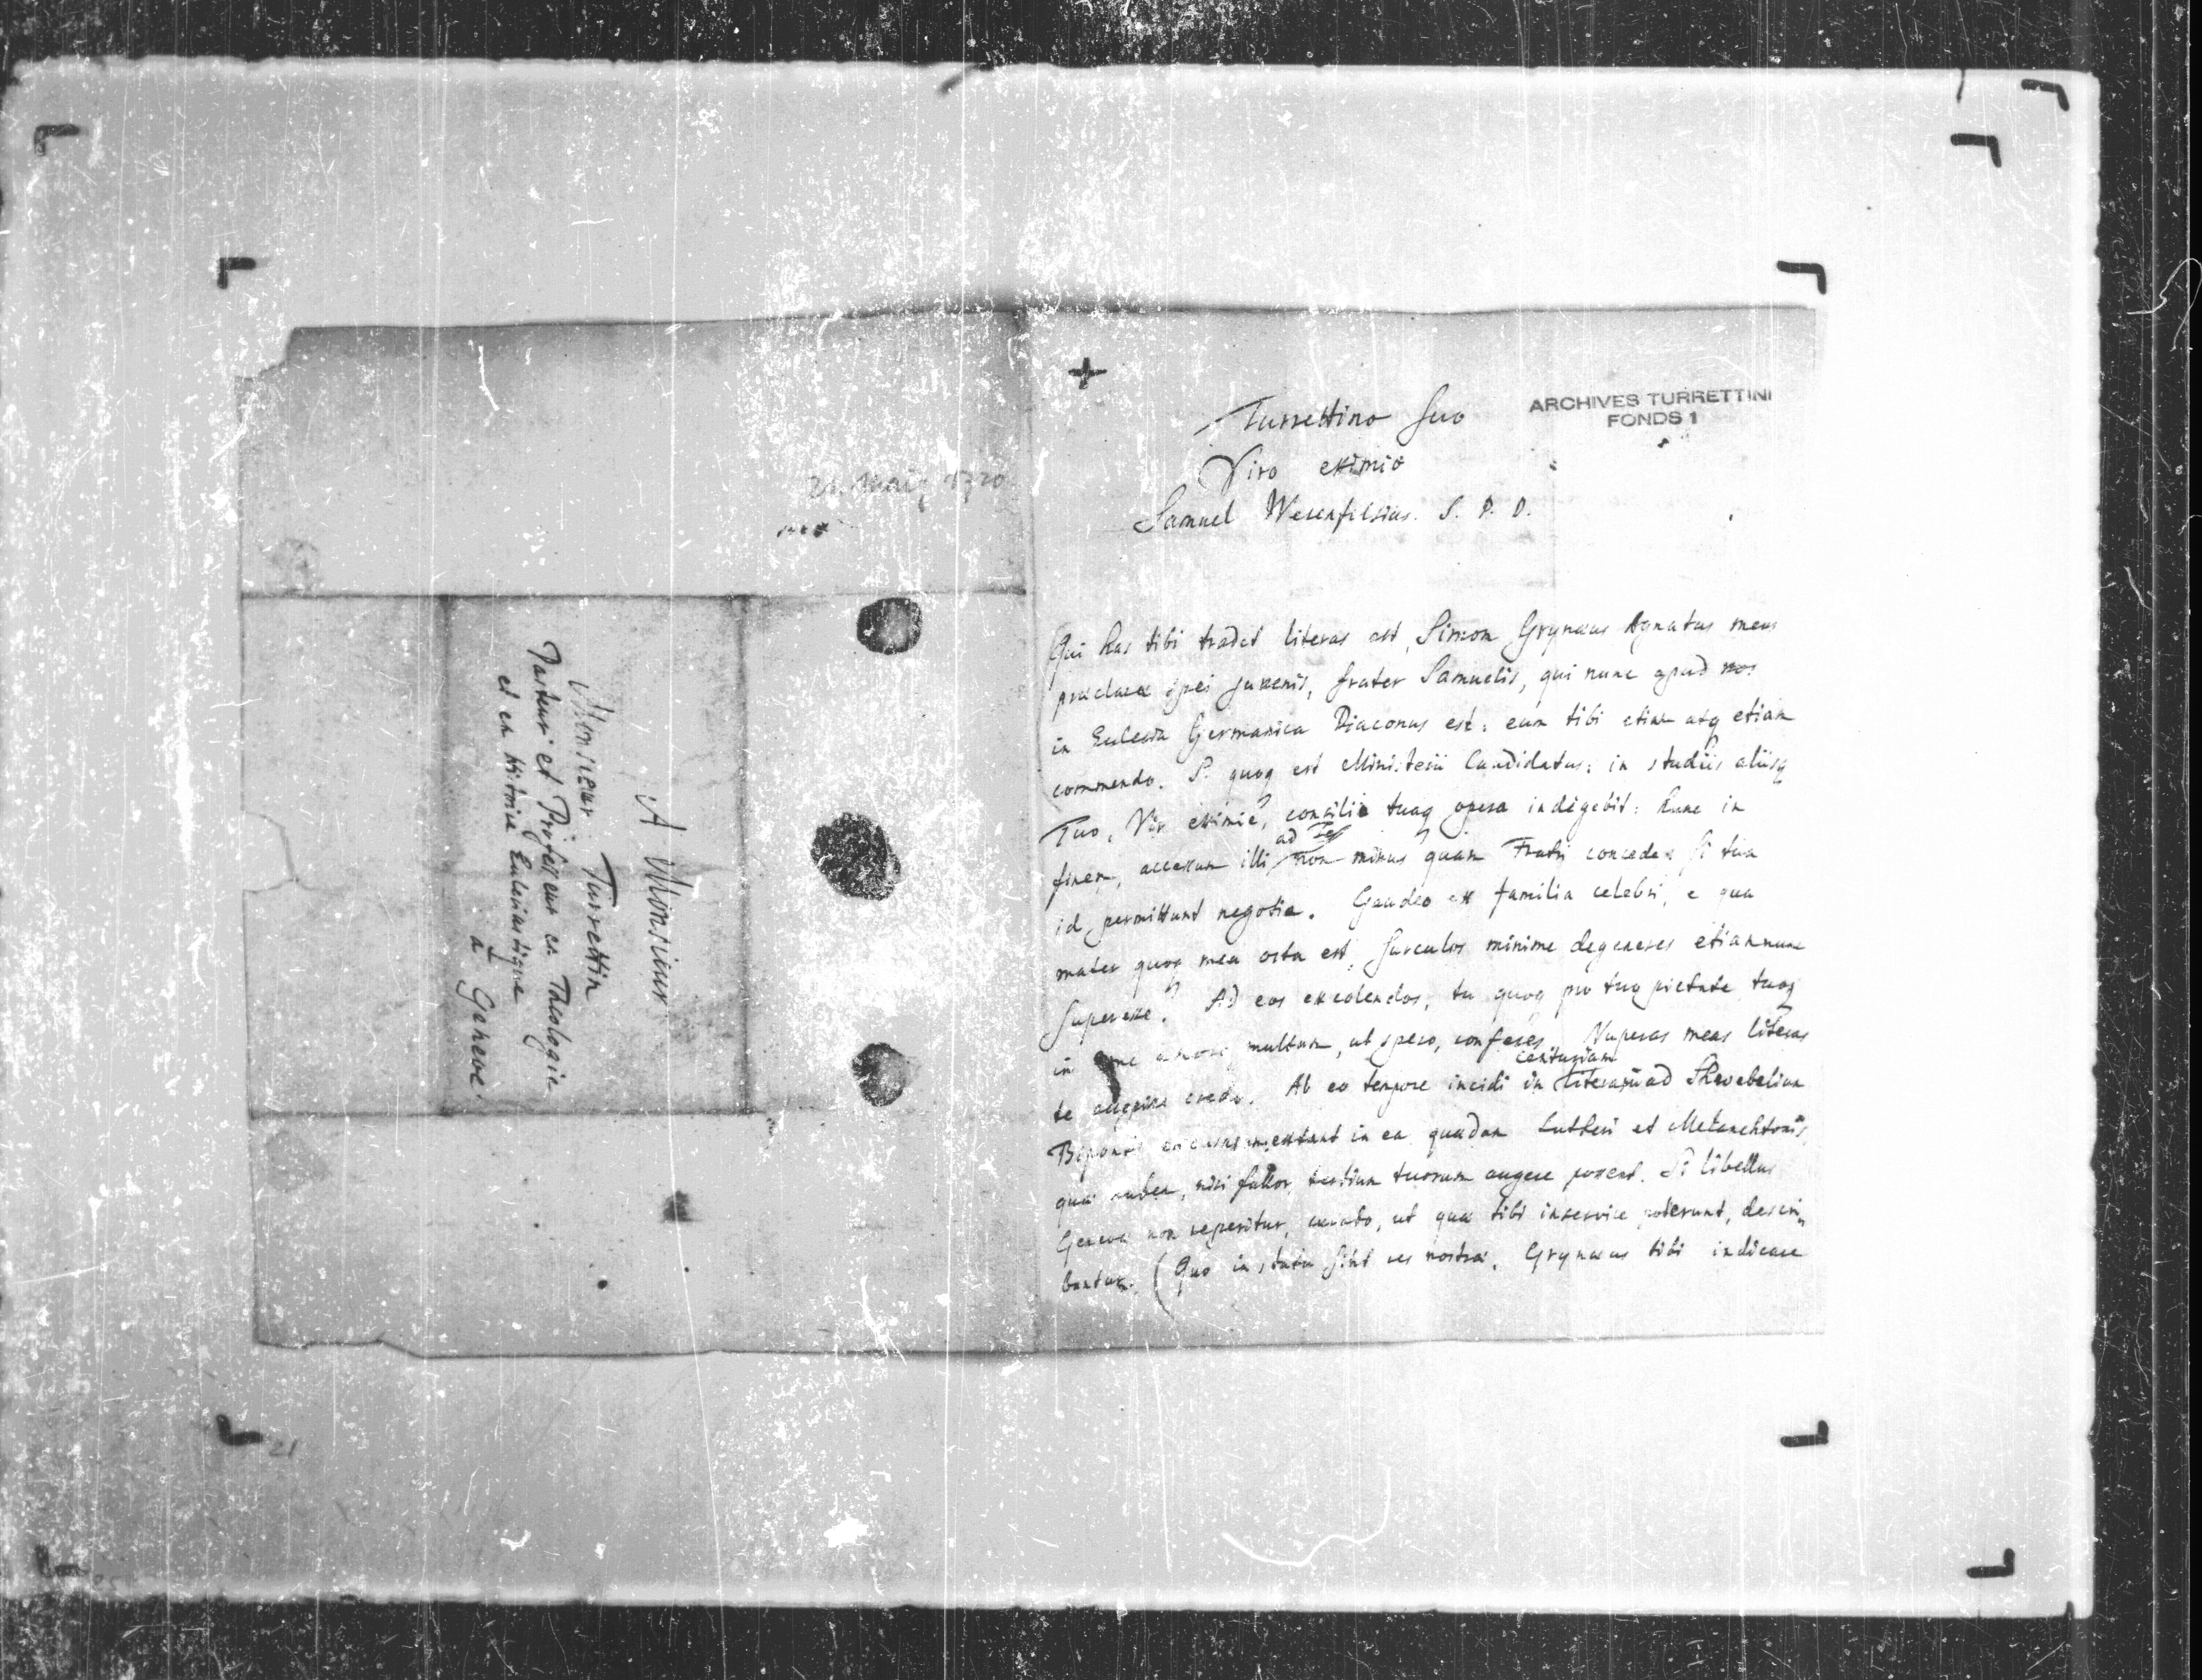 A Monsieur
Monsieur Turrettin
Pasteur et Professeur en Theologie
et en Histoire Ecclesiastique
à Geneve.
Maij 1720
ARCHIVES TURRETTINI
FONDS 1
Turrettino suo
Viro eximio
Samuel Werenfelsius. S. P. D.
Qui has tibi tradet literas est, Simon Grynæus Agnatus meus
præclaræ spei juvenis, frater Samuelis, qui nunc apud nos
in Ecclesia Germanica Diaconus est: eum tibi etiam atq etiam
commendo. Is quoq est Ministerii Candidatus: in studiis aliisq
Tuo, Vir eximie, consilio tuaq opera indigebit: hunc in
finem, accessum illi ad Te non minus quam Fratri concedes si tua
id permittunt negotia. Gaudeo ex familia celebri, e qua
mater quoq mea orta est, surculos minime degeneres etiamnunc
superesse. Ad eos excolendos, tu quoq pro tua pietate tuoq
in me amore multum, ut spero, conferes. Nuperas meas literas
te accepisse credo. Ab eo tempore incidi in centuriam literarum ad Schwebelium
Biponti extant in ea quædam Lutheri et Melanchtonis,
quæ nisi fallor, tuorum augere possent. Si libellus
Genevæ non reperitur, curabo, ut quæ tibi inservire poterunt, descri,,
bantur. (Quo in statu sint res nostræ, Grynæus tibi indicare
21